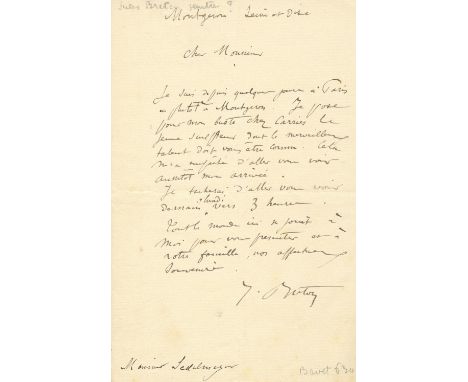 Jules Breton, peintre ?
Montgeron Seine et Oise
Cher Monsieur
Je suis depuis quelques jours à Paris
ou plutôt à Montgeron. Je pose
pour mon buste chez Carriès le
jeune sculpteur dont le merveilleux
talent doit vous être connu. Cela
m'a empêché d'aller vous voir
aussitôt mon arrivée.
Je tacherai d'aller vous voir
demain lundi vers 3 heures.
Tout le monde ici se joint à
moi pour vous présenter et à
votre famille, nos affectueux
souvenirs.
J. Breton
Monsieur Sedelmeyer
Bovet 630